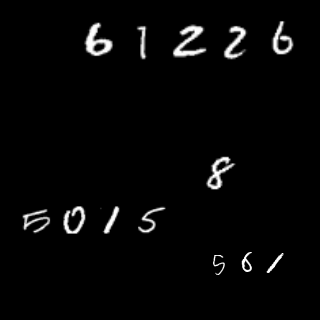 61226
8
5015
561